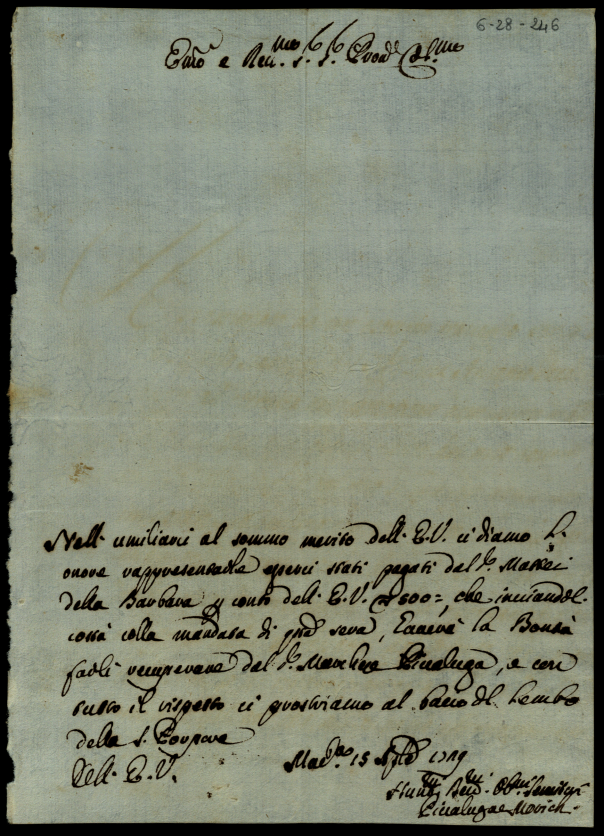 6-28-246
Emo e Rev.mo S. S. Pron
Nell' umiliarci al sommo merito dell' E.V. ci diamo l'
onore rappresentarle esserci stati pagati dal S. Marche
della Barbara p conto dell' E.V. 500=, che inviandole
costà colla mandata di questa sera, Haverà la Bontà
farli recuperare dal S. Marchese Pinaluga, e con
tutto il rispetto ci prostriamo al bacio del Lembo
della S. Porpora
Dell' E.V. 15 1719
Pinaluga e Movich